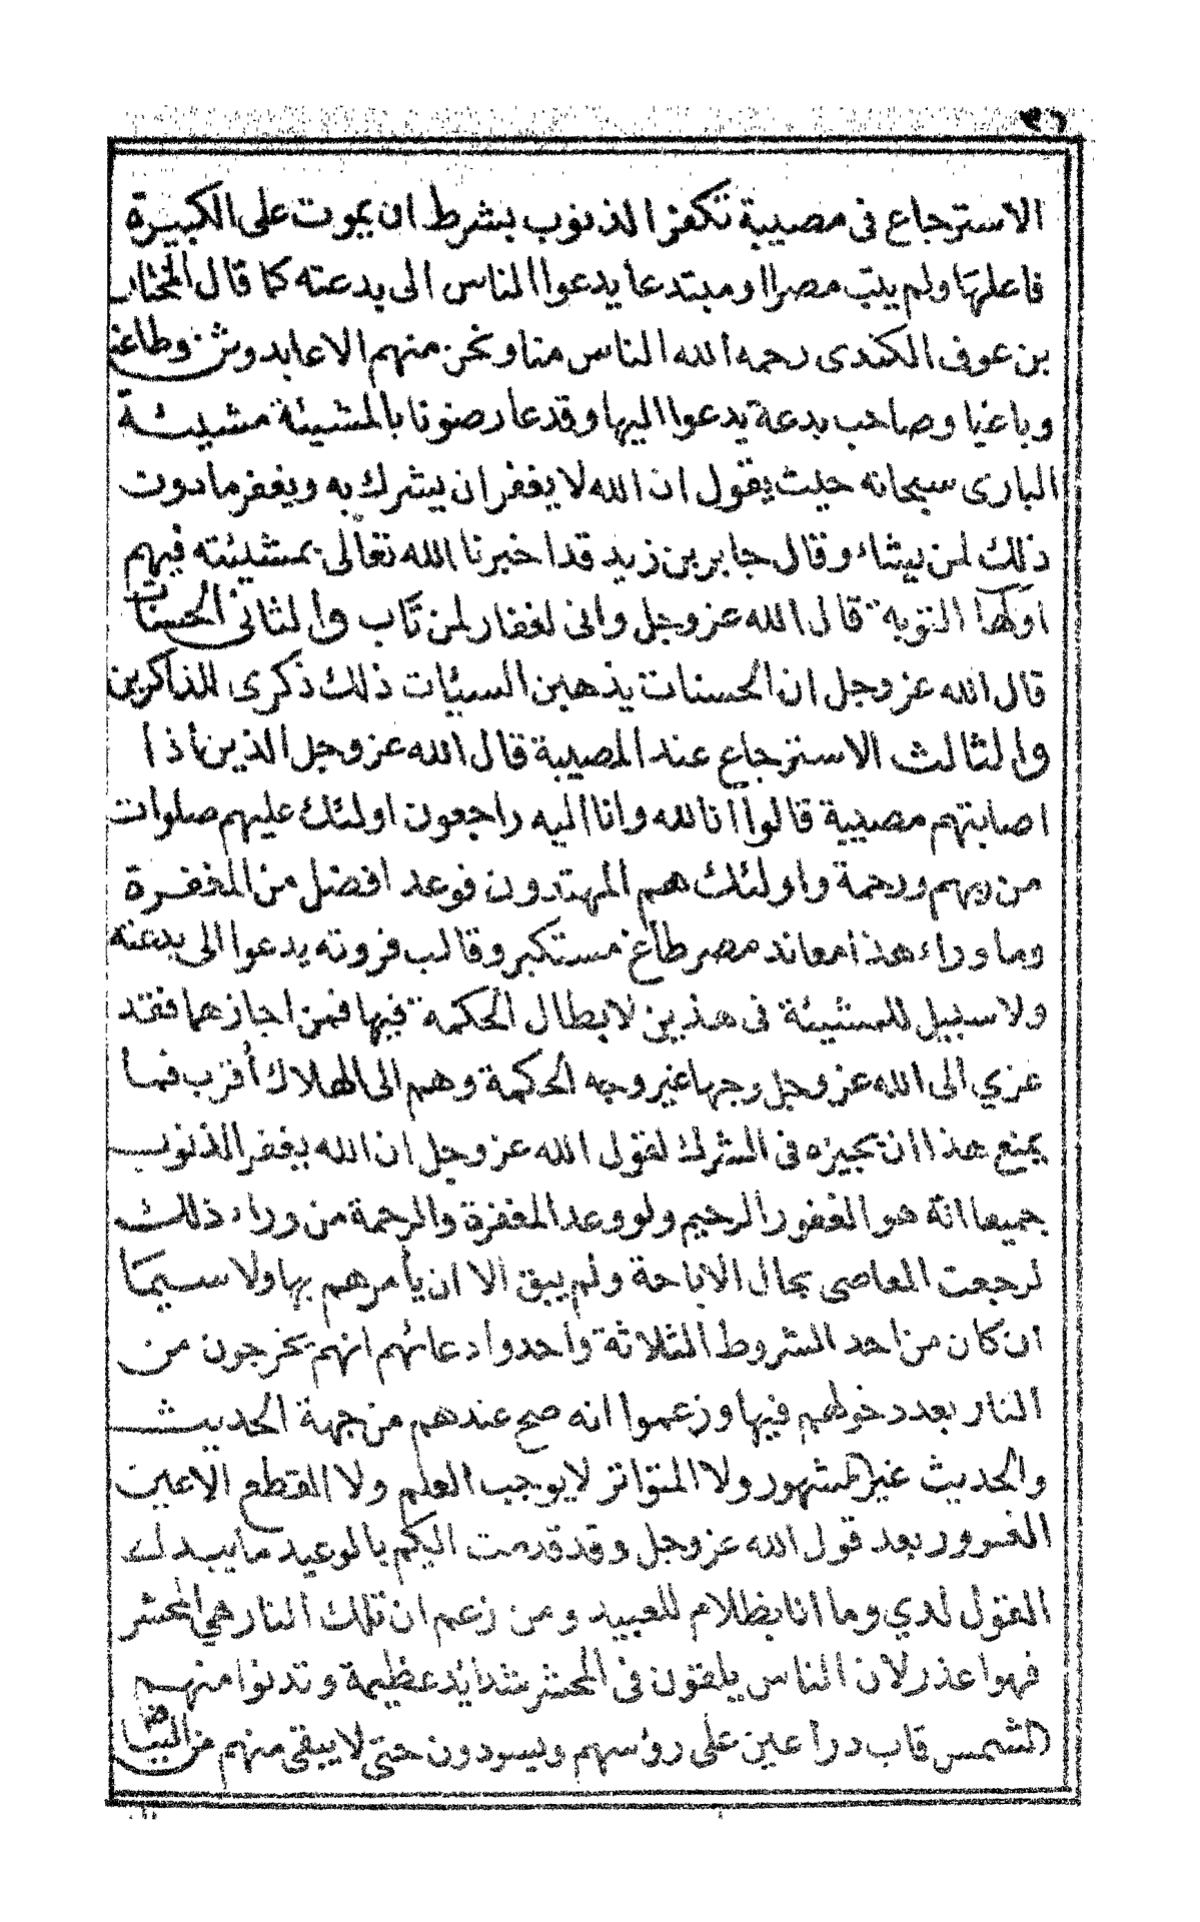 ٢٦
الاسترجاع فى مصيبة تكفر الذنوب بشرط ان يموت على الكبيرة
فاعلها ولم يتب مصرا او مبتدعا يدعوا الناس الى بدعته كما قال المختار
بن عوف الكندى رحمه الله الناس منا ونحن منهم الا عابد وثن وطاغ
وباغيا وصاحب بدعة يدعوا اليها وقد عارضونا بالمشيئة مشيئة
البارى سبحانه حيث يقول ان الله لا يغفر ان يشرك به ويغفر ما دون
ذلك لمن يشاء وقال جابر بن زيد قد اخبرنا الله تعالى بمشيئته فيهم
اولها التوبة قال الله عز وجل وانى لغفار لمن تاب والثانى الحسنات
قال الله عز وجل ان الحسنات يذهبن السيئات ذلك ذكرى للذاكرين
والثالث الاسترجاع عند المصيبة قال الله عز وجل الذين اذا
اصابتهم مصيبة قالوا انا لله وانا اليه راجعون اولئك عليهم صلوات
من ربهم ورحمة واولئك هم المهتدون فوعد افضل من المغفرة
وما وراء هذا معاند مصر طاغ مستكبر وقالب فروته يدعوا الى بدعته
ولا سبيل للمشيئة فى هذين لابطال الحكمة فيها فمن اجازهما فقد
عزي الى الله عز وجل وجها غير وجه الحكمة وهم الى الهلاك أقرب فما
يمنع هذا ان يجيزه فى الشرك لقول الله عز وجل ان الله يغفر الذنوب
جميعا انه هو الغفور الرحيم ولو وعد المغفرة والرحمة من وراء ذلك
لرجعت المعاصى بحال الاباحة ولم يبق الا ان يأمرهم بها ولا سيما
ان كان من احد الشروط الثلاثة واحدوا دعائهم انهم يخرجون من
النار بعد دخولهم فيها وزعموا انه صح عندهم من جهة الحديث
والحديث غير المشهور ولا المتواتر لا يوجب العلم ولا القطع الا عين
الغرور بعد قول الله عز وجل وقد قدمت اليكم بالوعيد ما يبدل
القول لدي وما انا بظلام للعبيد ومن زعم ان تلك النار هي المحشر
فهوا عذر لان الناس يلقون فى المحشر شدايد عظيمة وتدنوا منهم
الشمس قاب دراعين على رؤسهم ويسودون حتى لا يبقى منهم من البياض